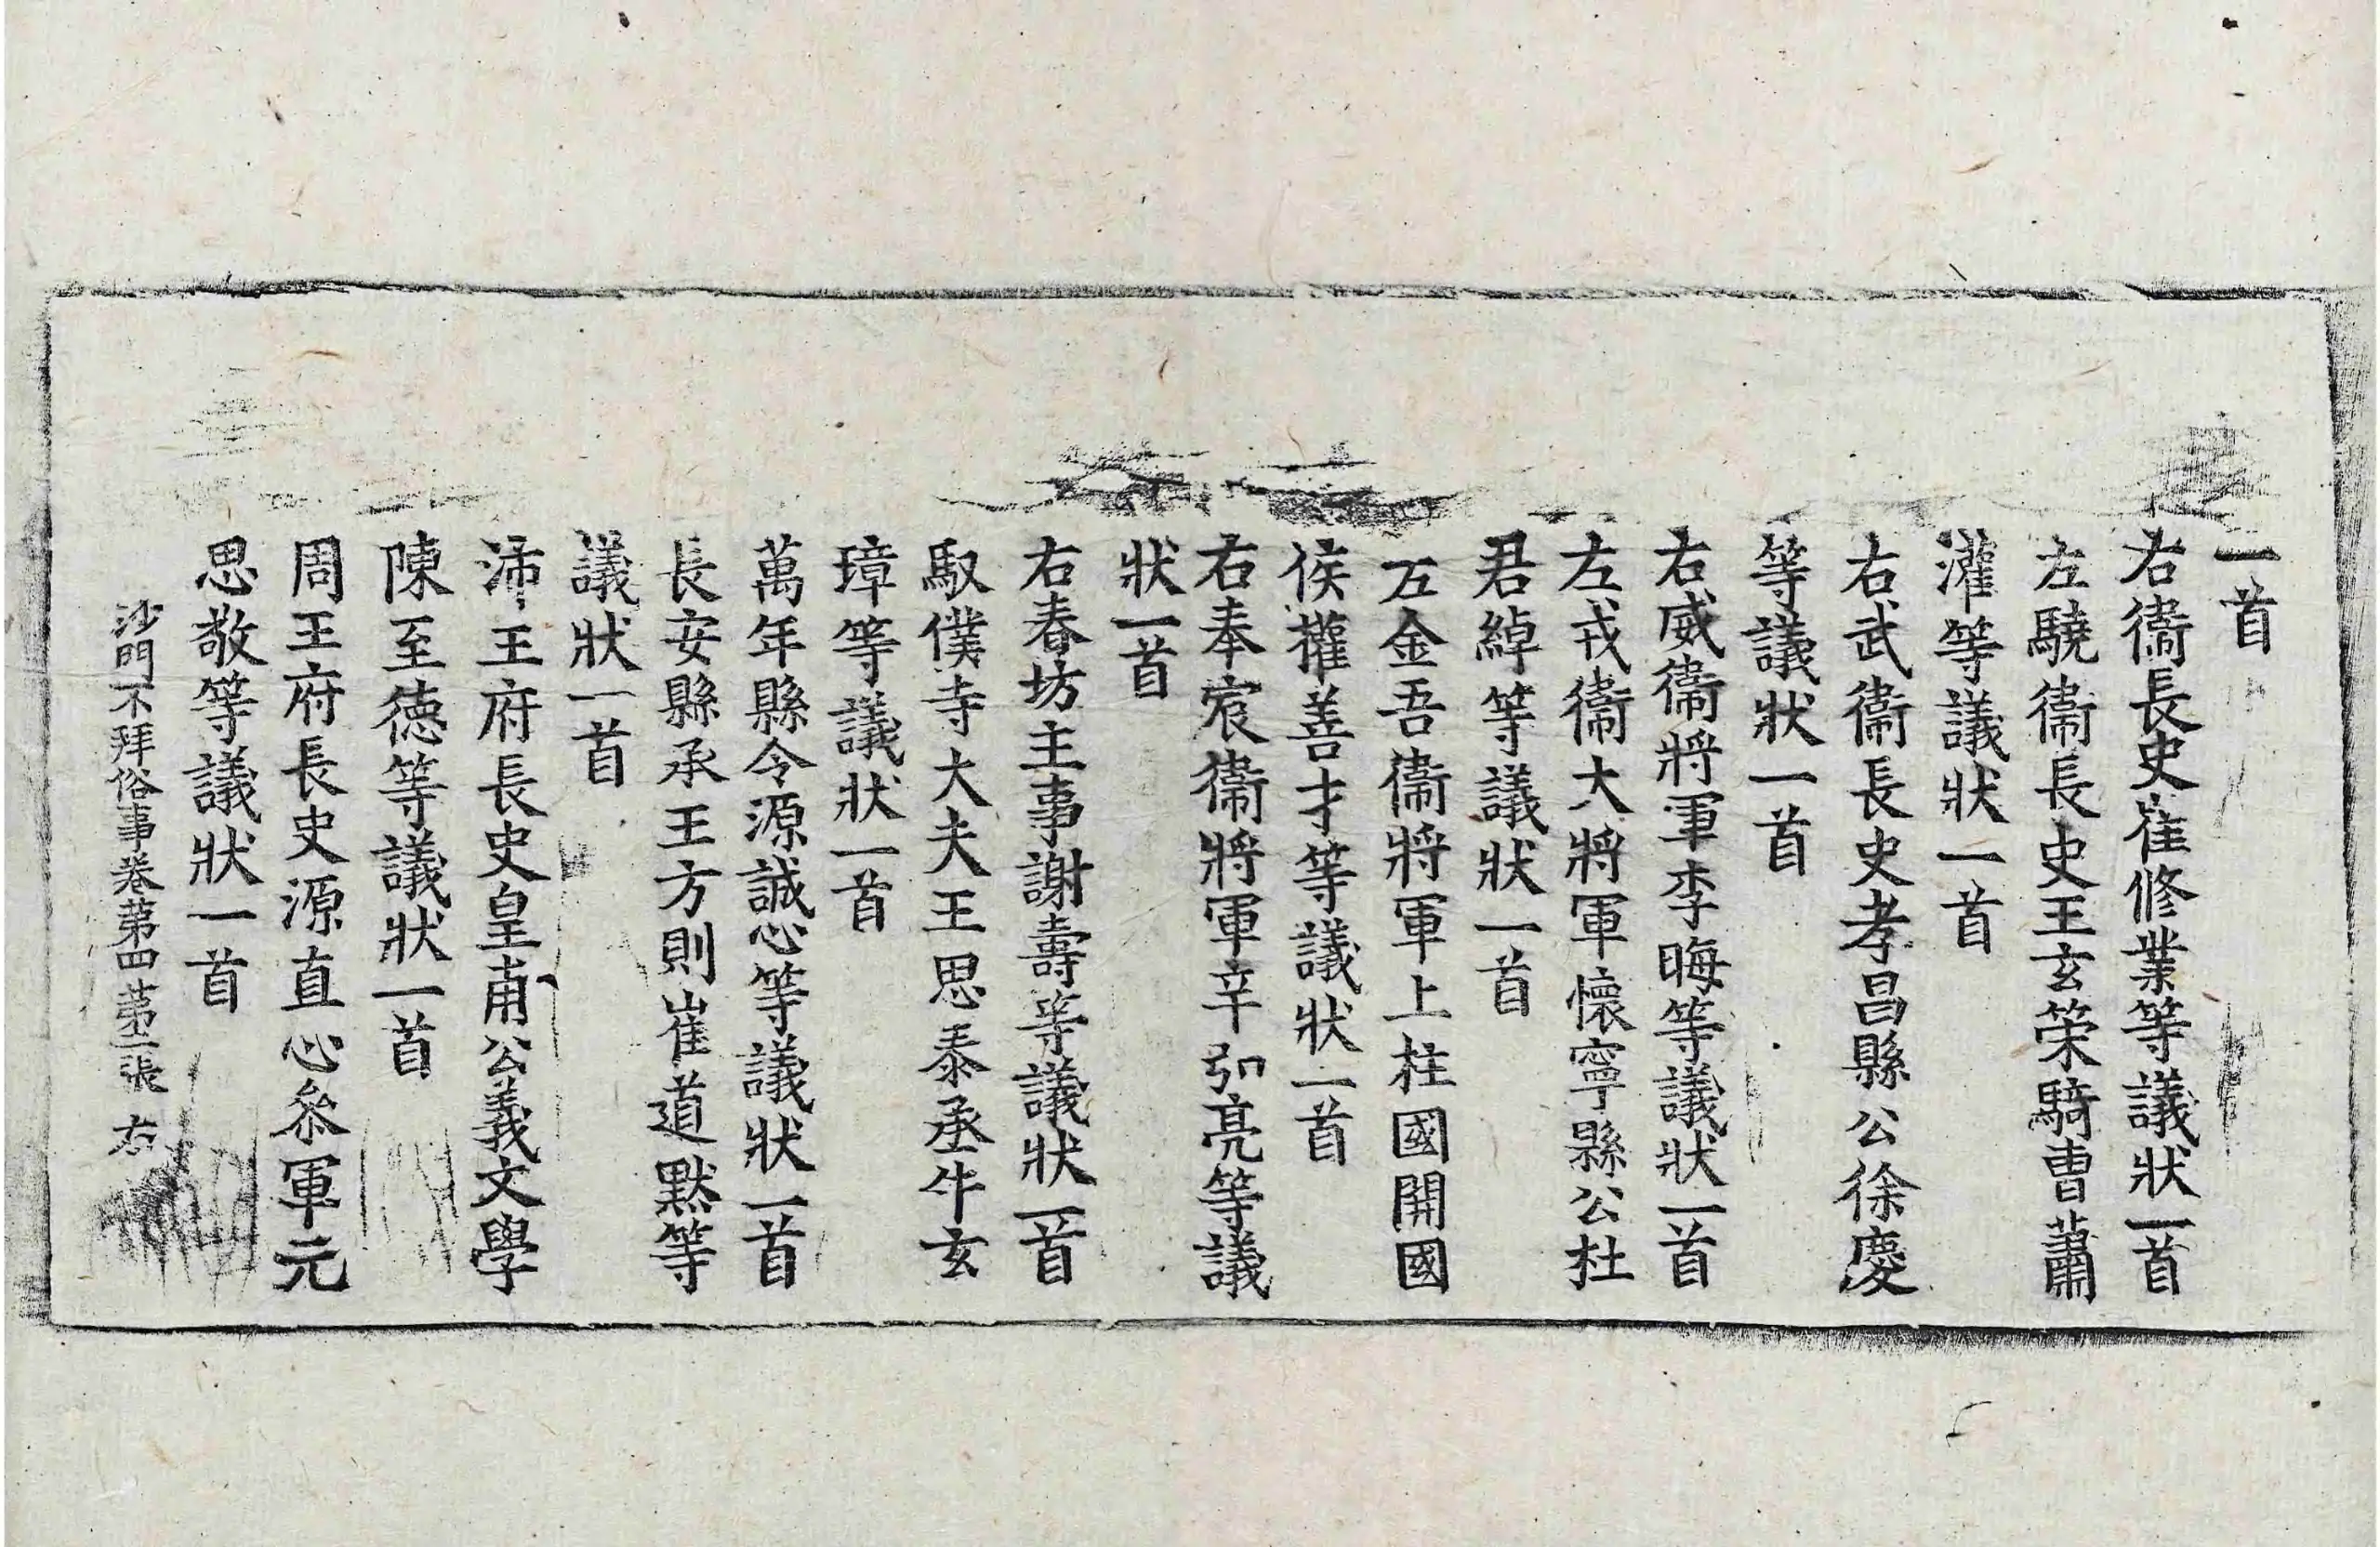 一首
右衞長史崔修業等議狀一首
左驍衞長史王玄策騎曹蕭
灌等議狀一首
右武衞長史孝昌縣公徐慶
等議狀一首
右威衞將軍李晦等議狀一首
左戎衞大將軍懷寧縣公杜
君綽等議狀一首
左金吾衞將軍上柱國開國
侯權善才等議狀一首
右奉宸衞將軍辛弘亮等議
狀一首
右春坊主事謝壽等議狀一首
馭僕寺大夫王思泰丞牛玄
璋等議狀一首
萬年縣令源誠心等議狀一首
長安縣丞王方則崔道默等
議狀一首
沛王府長史皇甫公義文學
陳至德等議狀一首
周王府長史源直心叅軍元
思敬等議狀一首
沙門不拜俗事卷第四 第二張 右